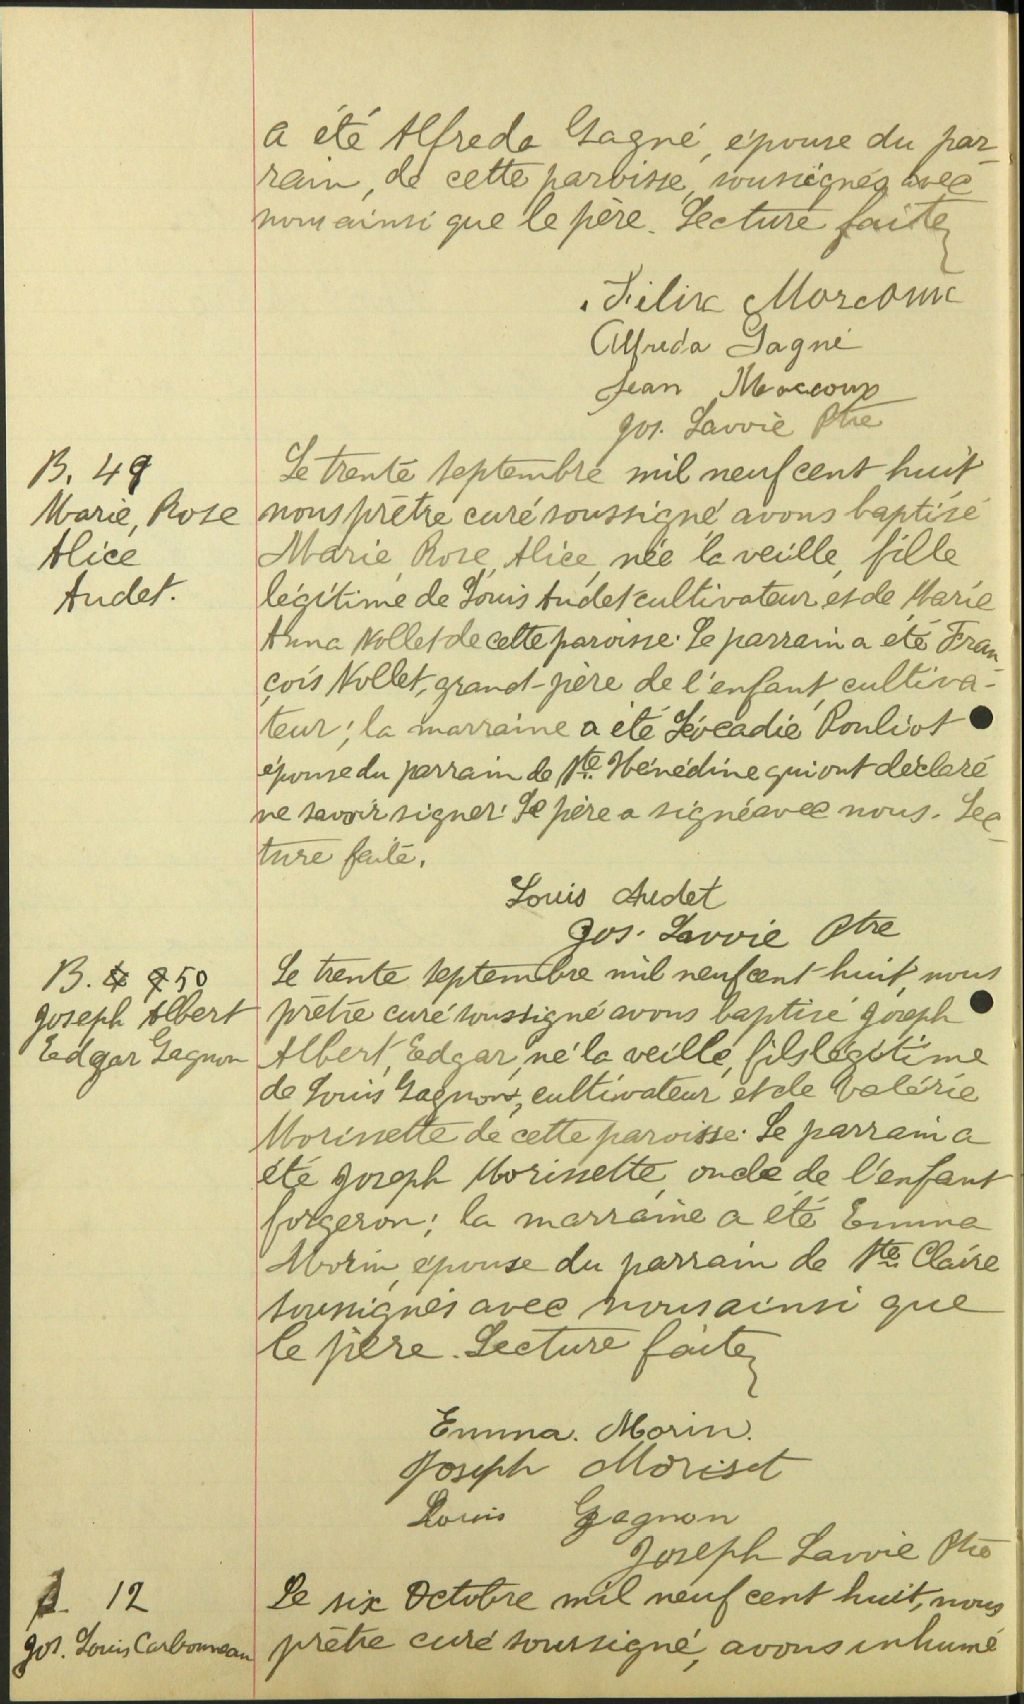 a été Alfreda Gagné, épouse du par-
rain, de cette paroisse, soussignés avec
nous ainsi que le père. Lecture faite
Félix Marcoux
Alfreda Gagné
Jean Marcoux
Jos. Lavoie Ptre
B. 49
Marie, Rose
Alice
Audet.
Le trente septembre mil neuf cent huit
nous prêtre curé soussigné avons baptisé
Marie, Rose, Alice, née la veille, fille
légitime de Louis Audet cultivateur et de Marie
Anna Nollet de cette paroisse. Le parrain a été Fran-
çois Nollet, grand-père de l'enfant, cultiva-
teur; la marraine a été Léocadie Pouliot
épouse du parrain de Ste Hénédine qui ont déclaré
ne savoir signer. Le père a signé avec nous. Lec-
ture faite.
Louis Audet
Jos. Lavoie Ptre
B. 50
Joseph Albert
Eedgar Gagnon
Le trente septembre mil neuf cent huit, nous
prêtre curé soussigné avons baptisé Joseph
Albert, Eedgar, né la veille, fils légitime
de Louis Gagnon, cultivateur et de Valérie
Morissette de cette paroisse. Le parrain a
été Joseph Morissette, oncle de l'enfant
forgeron; la marraine a été Emma
Morin, épouse du parrain de Ste Claire
soussignés avec nous ainsi que
le père. Lecture faite
Emma. Morin.
Joseph Moriset
Louis Gagnon
Joseph Lavoie Ptre
12
Jos. Louis Carbonneau
Le six Octobre mil neuf cent huit, nous
prêtre curé soussigné, avons inhumé